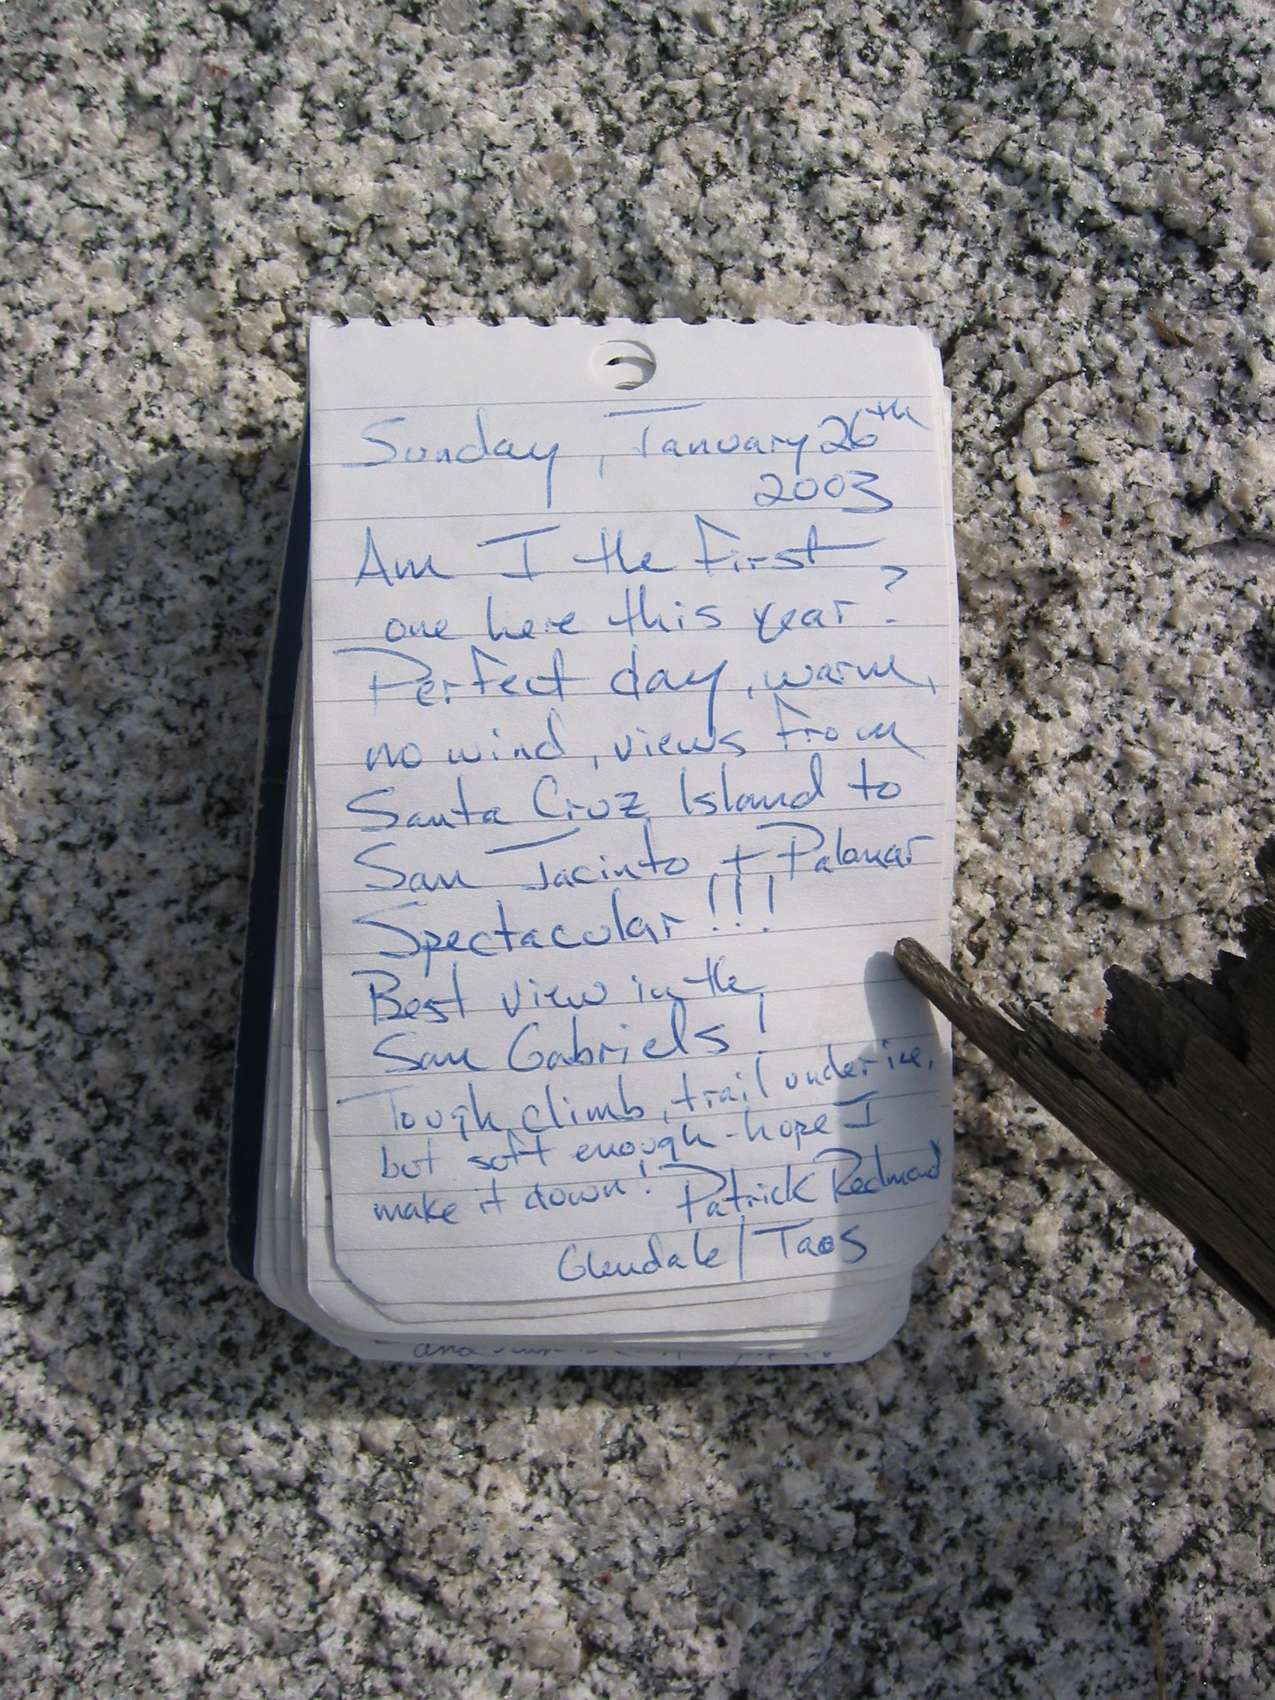 Sunday, January 26th
2003
Am I the first
one here this year?
Perfect day, warm,
no wind, views from
Santa Cruz Island to
San Jacinto + Palomar
Spectacular!!!
Best view in the
San Gabriels!
Tough climb, trail under ice,
but soft enough - hope I
make it down! Patrick Redmond
Glendale/Taos
and